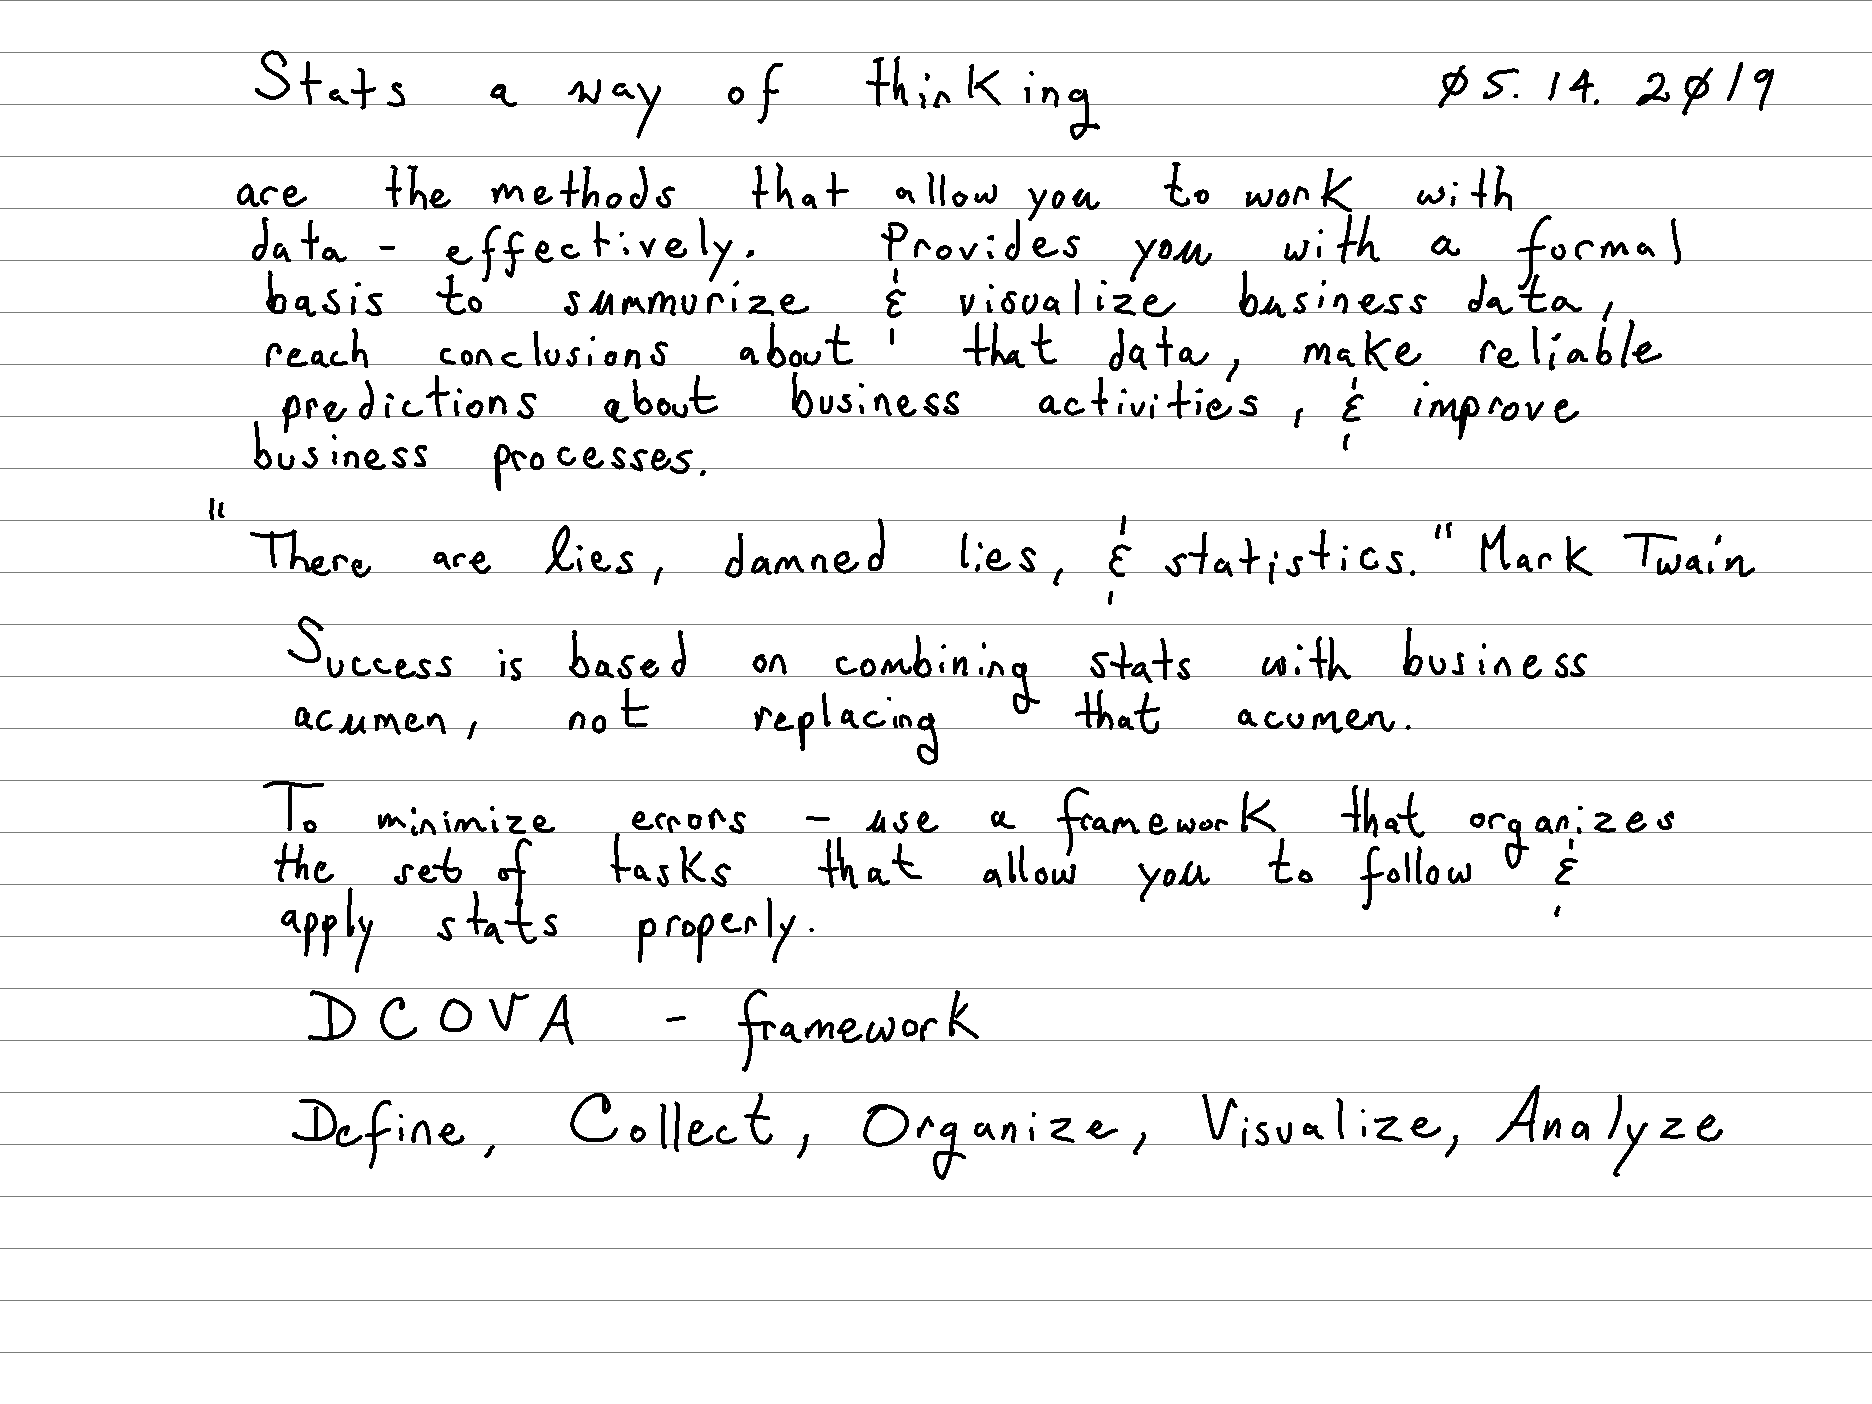 Stats a way of thinking 05.14.2019
are the methods that allow you to work with
data - effectively. Provides you with a formal
basis to summurize & visualize business data,
reach conclusions about that data, make reliable
predictions about business activities, & improve
business processes.
"There are lies, damned lies, & statistics." Mark Twain
Success is based on combining stats with business
acumen, not replacing that acumen.
To minimize errors - use a framework that organizes
the set of tasks that allow you to follow &
apply stats properly.
DCOVA - framework
Define, Collect, Organize, Visualize, Analyze